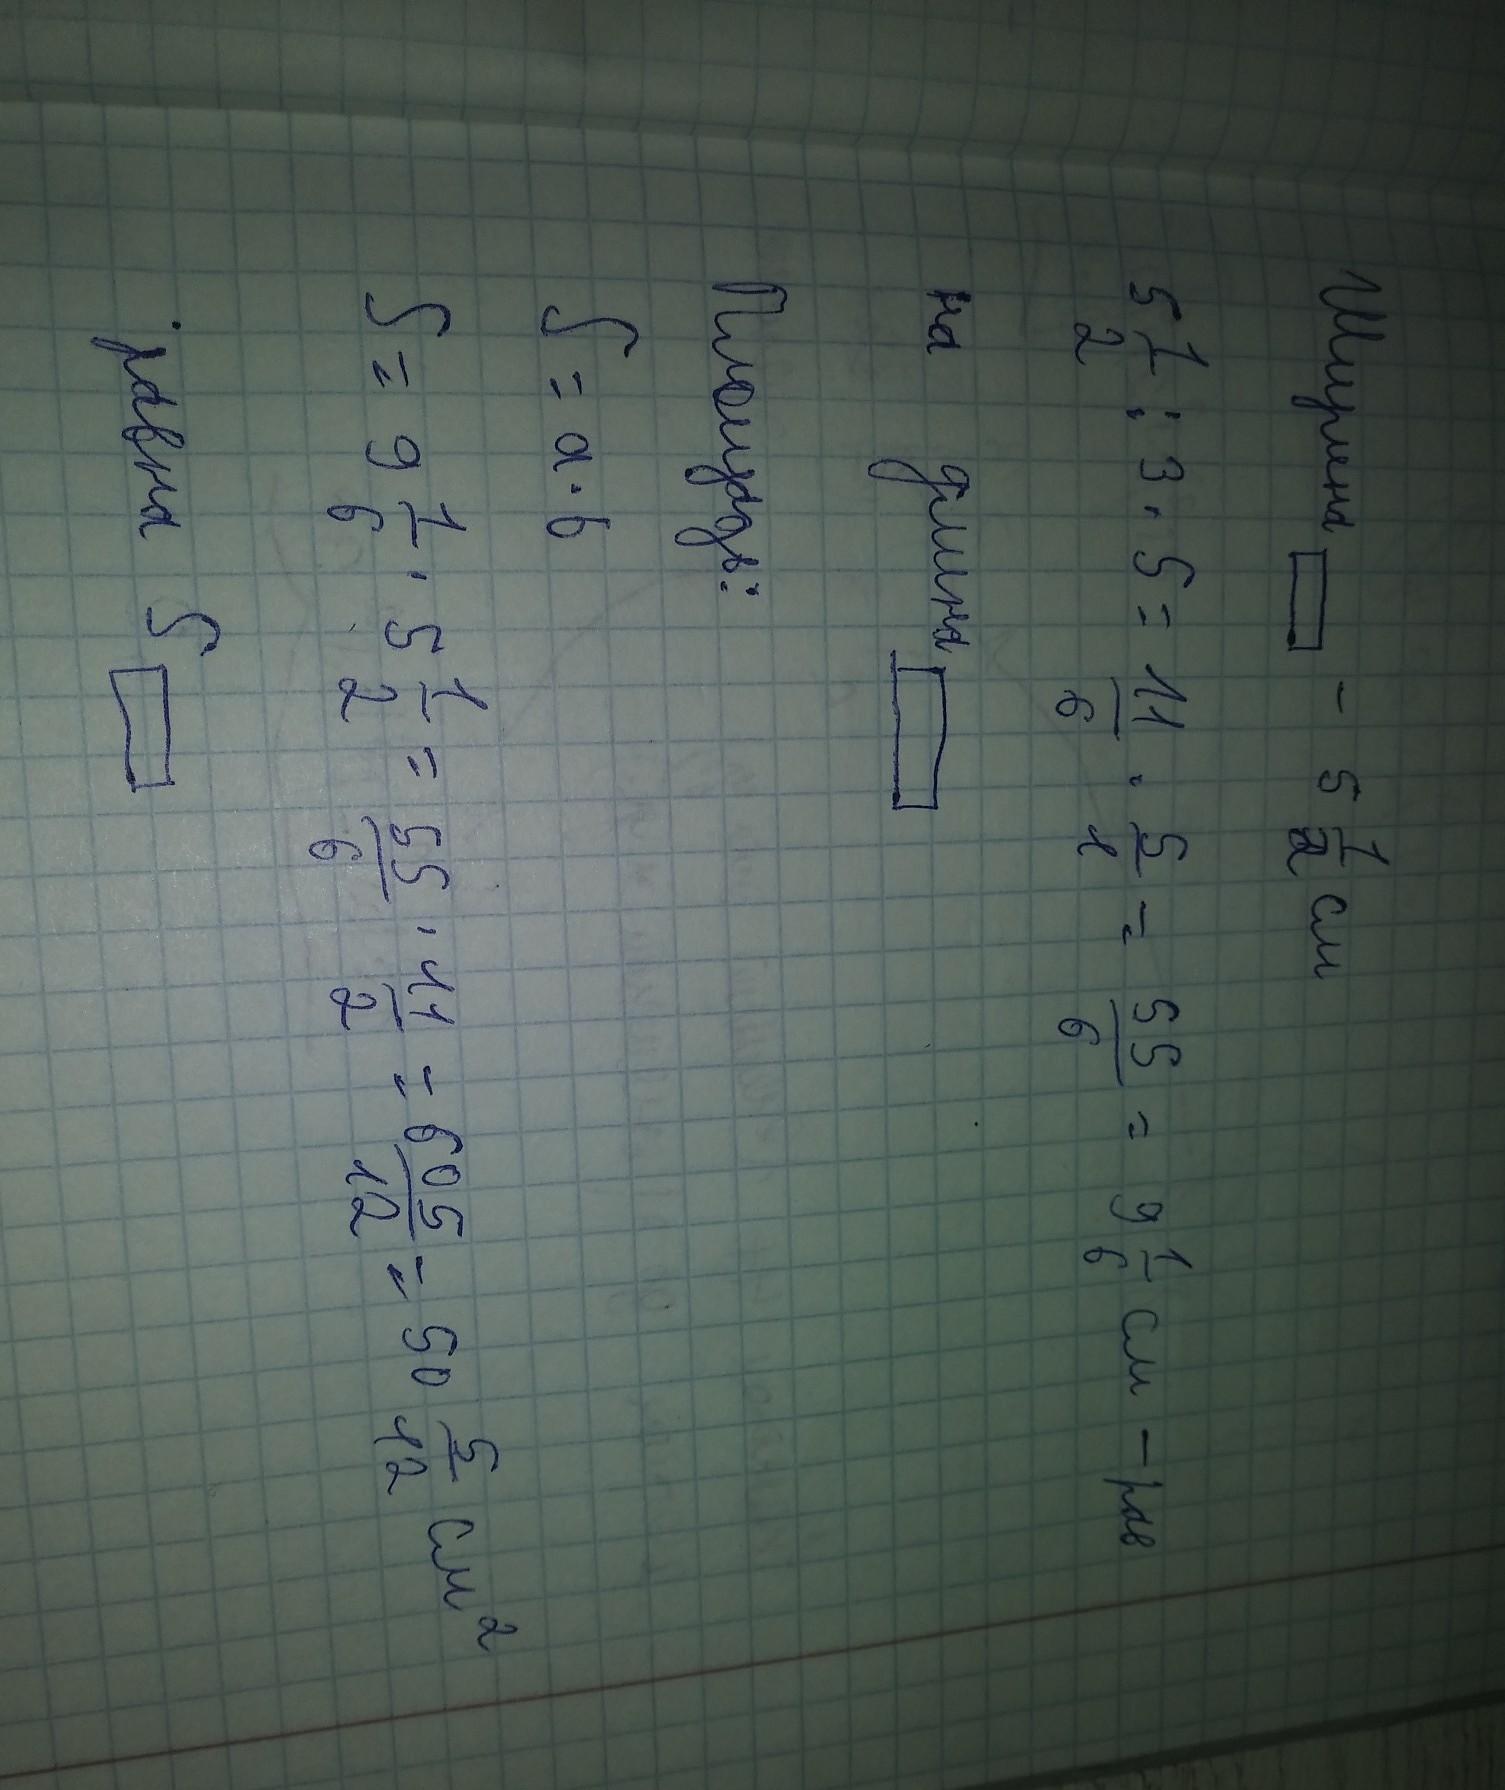 Ширена ▭ - 5 1/2 см
5 1/2 : 3 · 5 = 11/6 · 5/1 = 55/6 = 9 1/6 см - рав
на длина ▭
Площадь:
S = a · b
S = 9 1/6 · 5 1/2 = 55/6 · 11/2 = 605/12 = 50 5/12 см²
равна S ▭